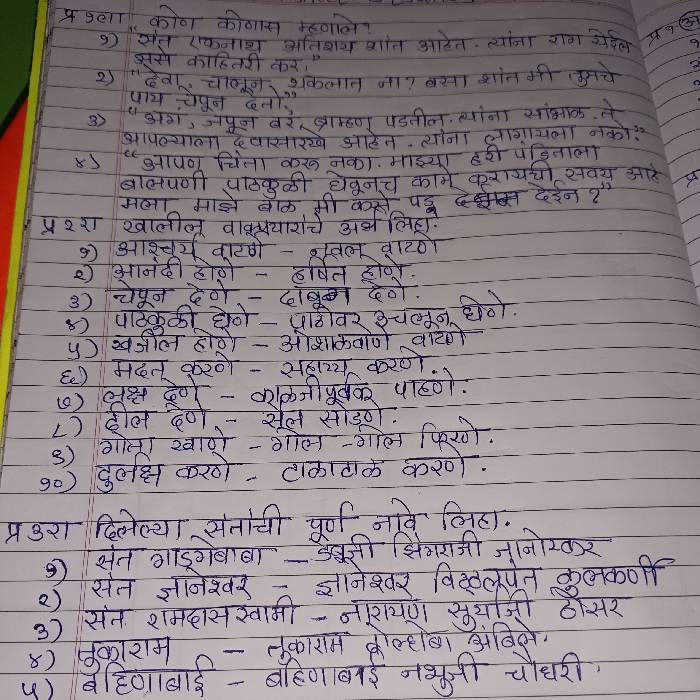 प्र १ला "कोण कोणास म्हणाले?
१) "संत एकनाथ अतिशय शांत आहेत. त्यांना राग येईल
असे काहितरी कर."
२) "देवा, चालून थकलात ना? बसा शांत मी तुमचे
पाय चेपून देतो."
३) "अगं, जपून बरं, ब्राम्हण पडतील. त्यांना सांभाळ. ते
आपल्याला देवासारखे आहेत. त्यांना लागायला नको."
४) "आपण चिंता करू नका. माझ्या हरी पंडिताला
बालपणी पाठकुळी घेवूनच कामे करायची सवय आहे
मला माझे बाळ मी कसे पडू देईन?"
प्र २रा खालील वाक्प्रचारांचे अर्थ लिहा.
१) आश्चर्य वाटणे - नवल वाटणे
२) आनंदी होणे - हर्षित होणे.
३) चेपून देणे - दाबून देणे.
४) पाठकुळी घेणे - पाठीवर उचलून घेणे.
५) खजील होणे - ओशाळवाणे वाटणे
६) मदत करणे - सहाय्य करणे.
७) लक्ष देणे - काळजीपूर्वक पाहणे.
८) ढील देणे - सैल सोडणे.
९) गोता खाणे - गोल-गोल फिरणे.
१०) दुर्लक्ष करणे - टाळाटाळ करणे.
प्र ३रा दिलेल्या संतांची पूर्ण नावे लिहा.
१) संत गाडगेबाबा - डेबूजी झिंगराजी जानोरकर
२) संत ज्ञानेश्वर - ज्ञानेश्वर विठ्ठलपंत कुलकर्णी
३) संत रामदास स्वामी - नारायण सुर्याजी ठोसर
४) तुकाराम - तुकाराम बोल्होबा अंबिले.
५) बहिणाबाई - बहिणाबाई नथुजी चौधरी.